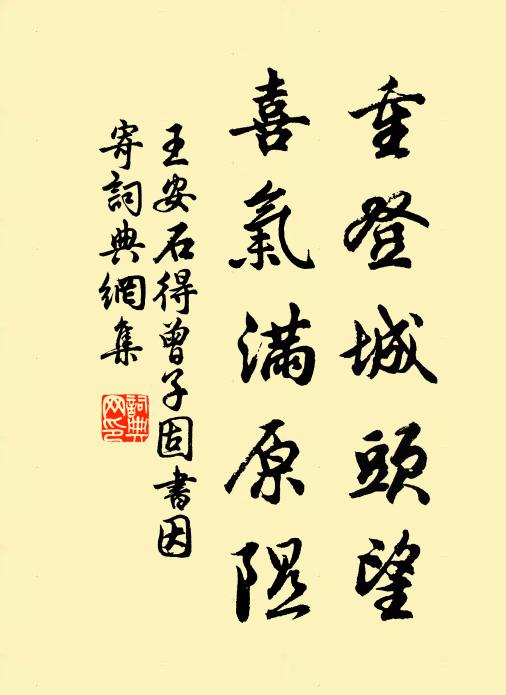 重登城頭望
喜氣滿原隰
王安石得曾子固書因
寄詞典網集
詞典網印